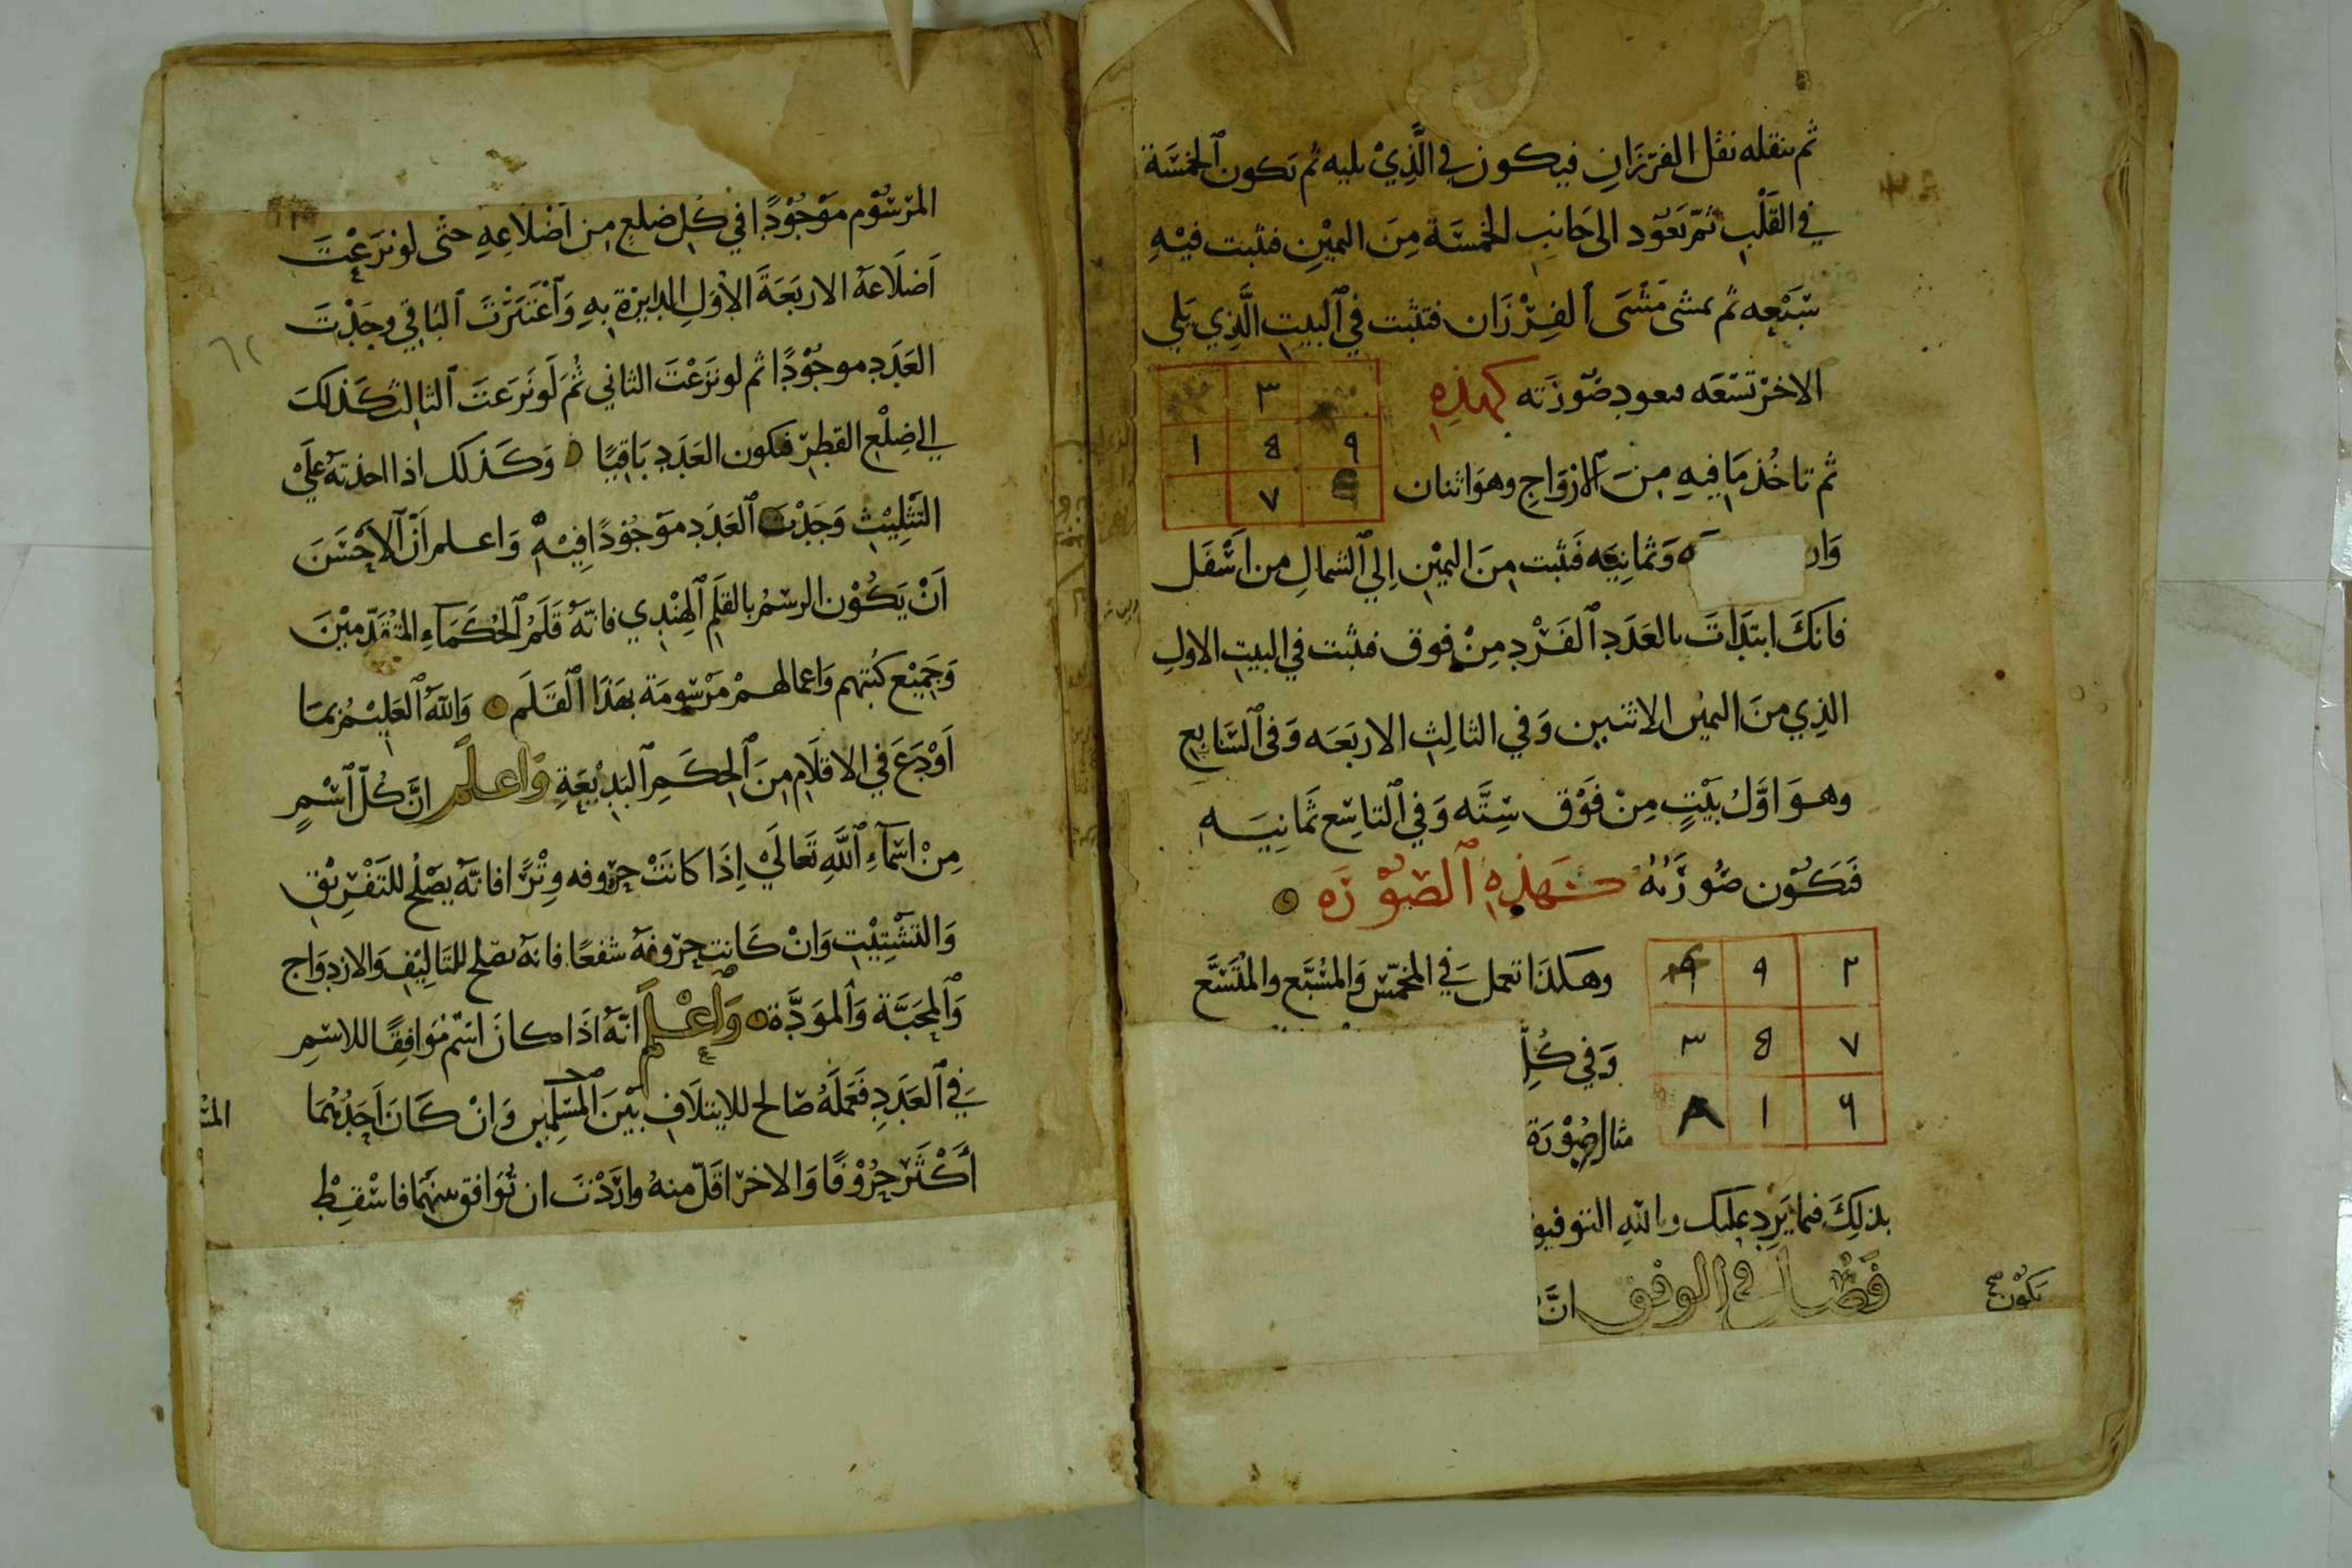 ثم ينقله نقل الفرزان فيكون في الَّذِيْ يليه ثم تكون الخمسَة
في القَلْبِ ثمّ تعَوُد الى جَانبِ الخمسَة مِنَ اليمِيْنِ فتثبت فيْهِ
سَبْعِه ثم تمشى مَشْىَ الفِرْزَان فتثبت في البيتِ الَّذِي يَلي
الاخرْ تسْعَه صُوْرَته كهذِهِ
٣
٩ 8 ١
٧
ثم تاخُذ مَا فيهِ مِنَ الازْوَاجِ وهوَ اثنان
وَثمانيَه فَتثبت مِنَ اليمْيْنِ اِلي الشمالِ من اسْفَل
فانكَ ابتدَاتَ بالعَدَدِ الفَرْدِ مِنْ فوق فتثبت في البيتِ الاولِ
الذِي منَ اليمين الاثنين وَفي الثالِثِ الاربَعَه وَفى السَّابِعِ
وهوَ اوَّلُ بَيْتٍ مِنْ فَوْق سِتَّه وَفي التاسِع ثَمانِيَه
فَتَكُوْن صُورَتُهُ كهَذِهِ الصّوُرَه
٢ ٩ ٤
٧ 8 ٣
٦ ١ ٨
وهكذَا تعمل في المخمّس وَالمسُبَّع والمتُسَّع
وَفي كُلِّ
مثال صُوْرَة
بذلِكَ فيما يَرِد عليك وباللهِ التوفيق
فَصْل في الوفق انَّ
تكوُن
المرْسُوْم موْجُوْدًا في كُل ضلعٍ مِن اَضْلاعِهِ حتى لو نَزَعْتَ
اَضلَاعَهُ الاربَعَةَ الاوَّلِ الدايرة بهِ وَاَعْتَبَرْتَ البَاقي وجَدْتَ
٦٢
العَدَدِ موجُوْدًا ثم لو نزَعْتَ الثاني ثُمَ لَو نَزَعتَ الثالث كَذلكَ
الي ضِلْع القطِرْ فيكون العَدَدِ بَاقِيًا وَكَذلكَ اذا اخذتَهُ عَلَيْ
التَثلِيْثِ وَجَدْتَ العَدَدِ موْجُوْدًا فِيْهِ وَاعلم اَنّ الاَحْسَنَ
اَنْ يَكُوْنَ الرسْمُ بالقلَمِ الهِنْدِي فانّهُ قَلَمُ الحُكَمَآءِ المتُقَدّمِيْنَ
وَجَمِيْع كُتبُهم وَاعمالهمْ مَرْسُومَة بهَذَا القَلَم وَاللهُ العَلِيْمُ بما
اَوْدَعَ في الاقلَامِ مِنَ الحِكَمِ البَدِيْعَةِ وَاعلَم انَّ كُلّ اسْمٍ
مِنْ اسْمَآءِ اللَّهِ تَعَالَيْ اِذَا كانَتْ حرُوفه وِتْرًا فانّه يصْلُح للتَفْرِيْقِ
وَالتشْتِيْتِ وَانْ كَانت حرُوفهُ شفعًا فانهُ يصْلح للتَالِيْفِ وَالازدِوَاج
وَالمحَبَّة وَالموَدَّة وَاعْلَم انَّهُ اذَا كانَ اسْم مُوَافِقًا للاسْمِ
في العَدَدِ فَعَمَلُهُ صَالح للاِيتلَافِ بَيْنَ المسْلِمين وَانْ كَانَ اَحَدُهُمَا
أَكْثَر حُرُوْفًا وَالاخرْ اقَلّ منهُ وارَدْتَ ان تُوَافق بينهُمَا فاسْقِطْ